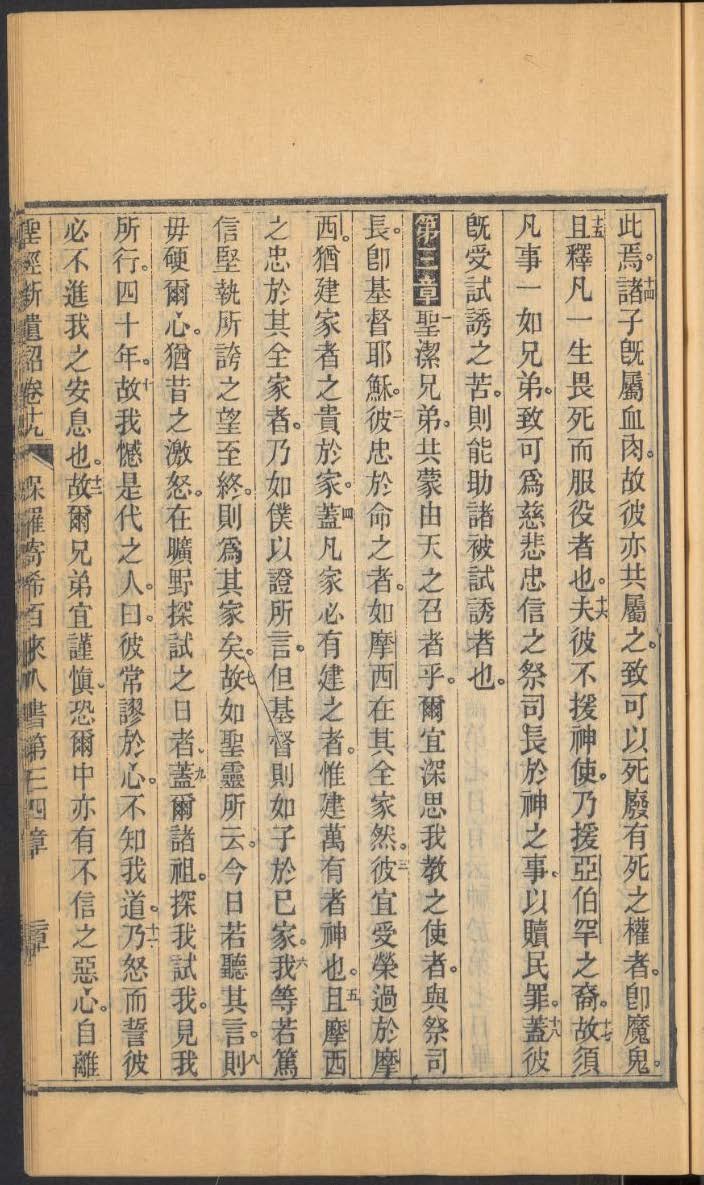 此焉。十四諸子旣屬血肉。故彼亦共屬之。致可以死廢有死之權者。卽魔鬼。
十五且釋凡一生畏死而服役者也。十六夫彼不援神使。乃援亞伯罕之裔。十七故須
凡事一如兄弟。致可爲慈悲忠信之祭司長於神之事。以贖民罪。十八蓋彼
旣受試誘之苦。則能助諸被試誘者也。
第三章一聖潔兄弟。共蒙由天之召者乎。爾宜深思我教之使者。與祭司
長。卽基督耶穌。二彼忠於命之者。如摩西在其全家然。三彼宜受榮過於摩
西。猶建家者之貴於家。四蓋凡家必有建之者。惟建萬有者神也。五且摩西
之忠於其全家者。乃如僕以證所言。但基督則如子於已家。六我等若篤
信堅執所誇之望至終。則爲其家矣。七故如聖靈所云。今日若聽其言。八則
毋硬爾心。猶昔之激怒。在曠野探試之日者。九蓋爾諸祖。探我試我。見我
所行。四十年。十故我憾是代之人。曰。彼常謬於心。不知我道。十一乃怒而誓彼
必不進我之安息也。十二故爾兄弟宜謹愼。恐爾中亦有不信之惡心。自離
聖經新遺詔卷十九 保羅寄希百來人書第三四章 三章